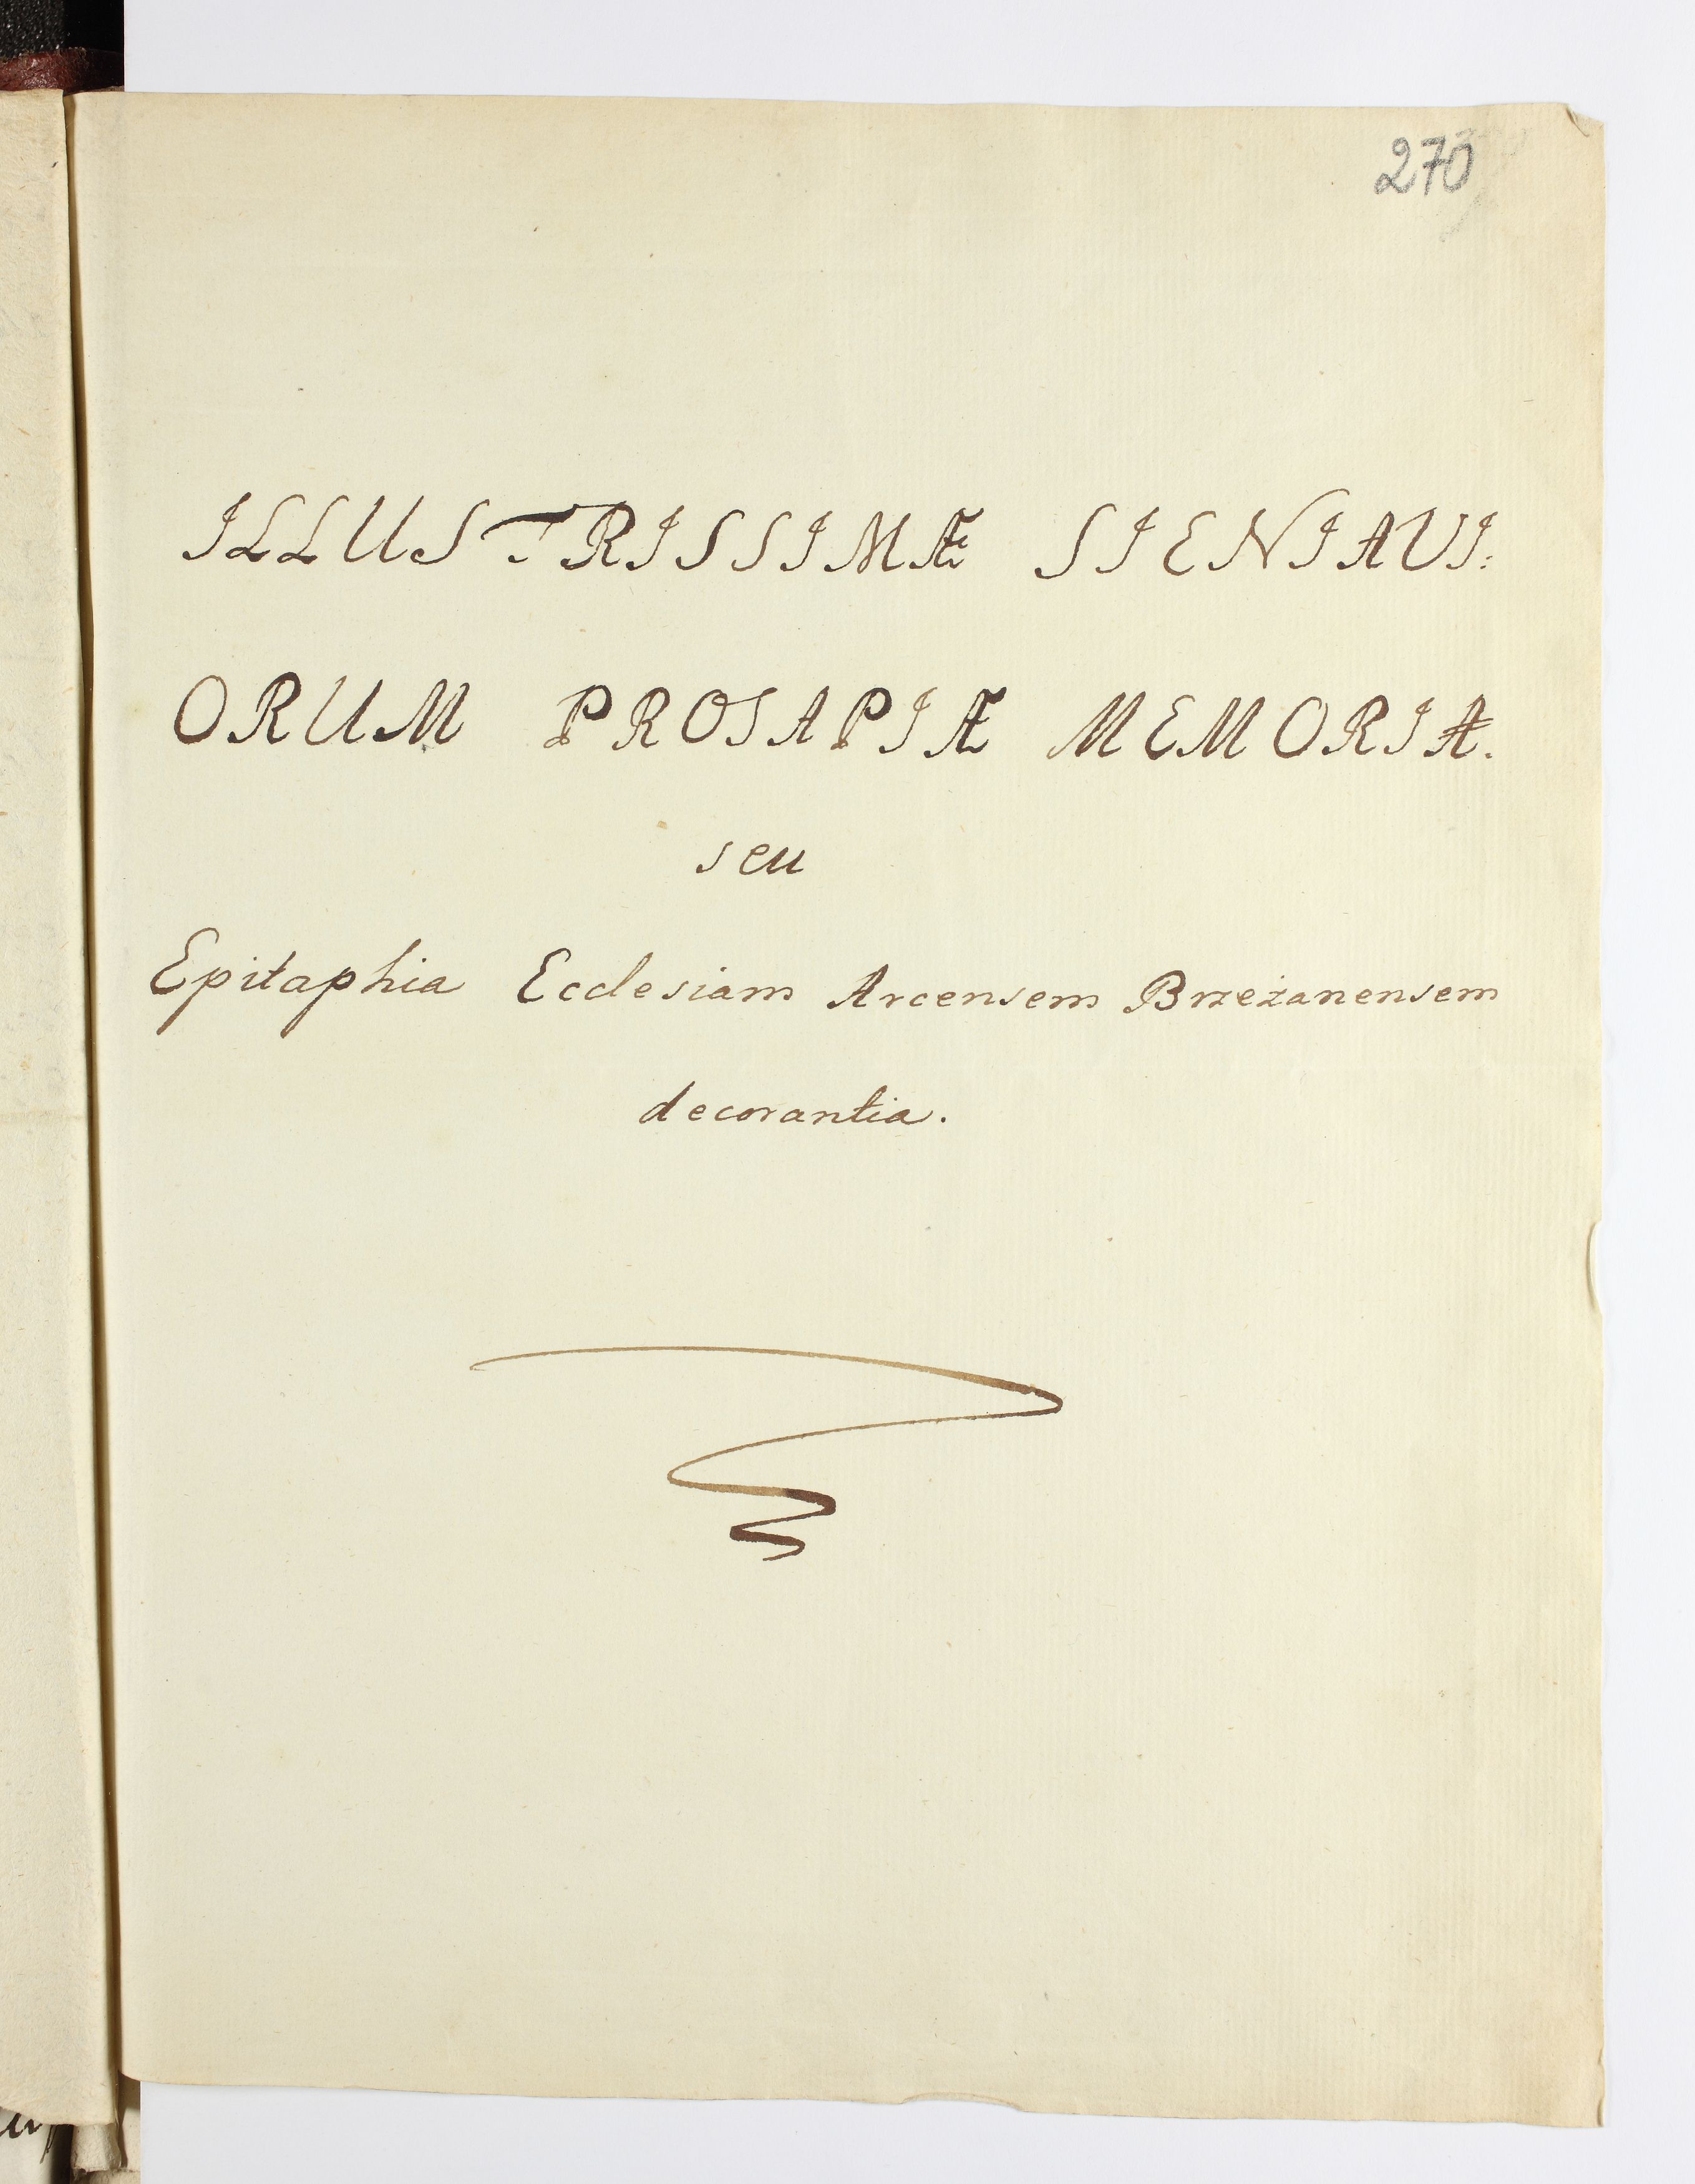 270
ILLUSTRISSIMÆ SIENIAVI:
ORUM PROSAPIÆ MEMORIA.
seu
Epitaphia Ecclesiam Arcensem Brzeżanensem
decorantia.